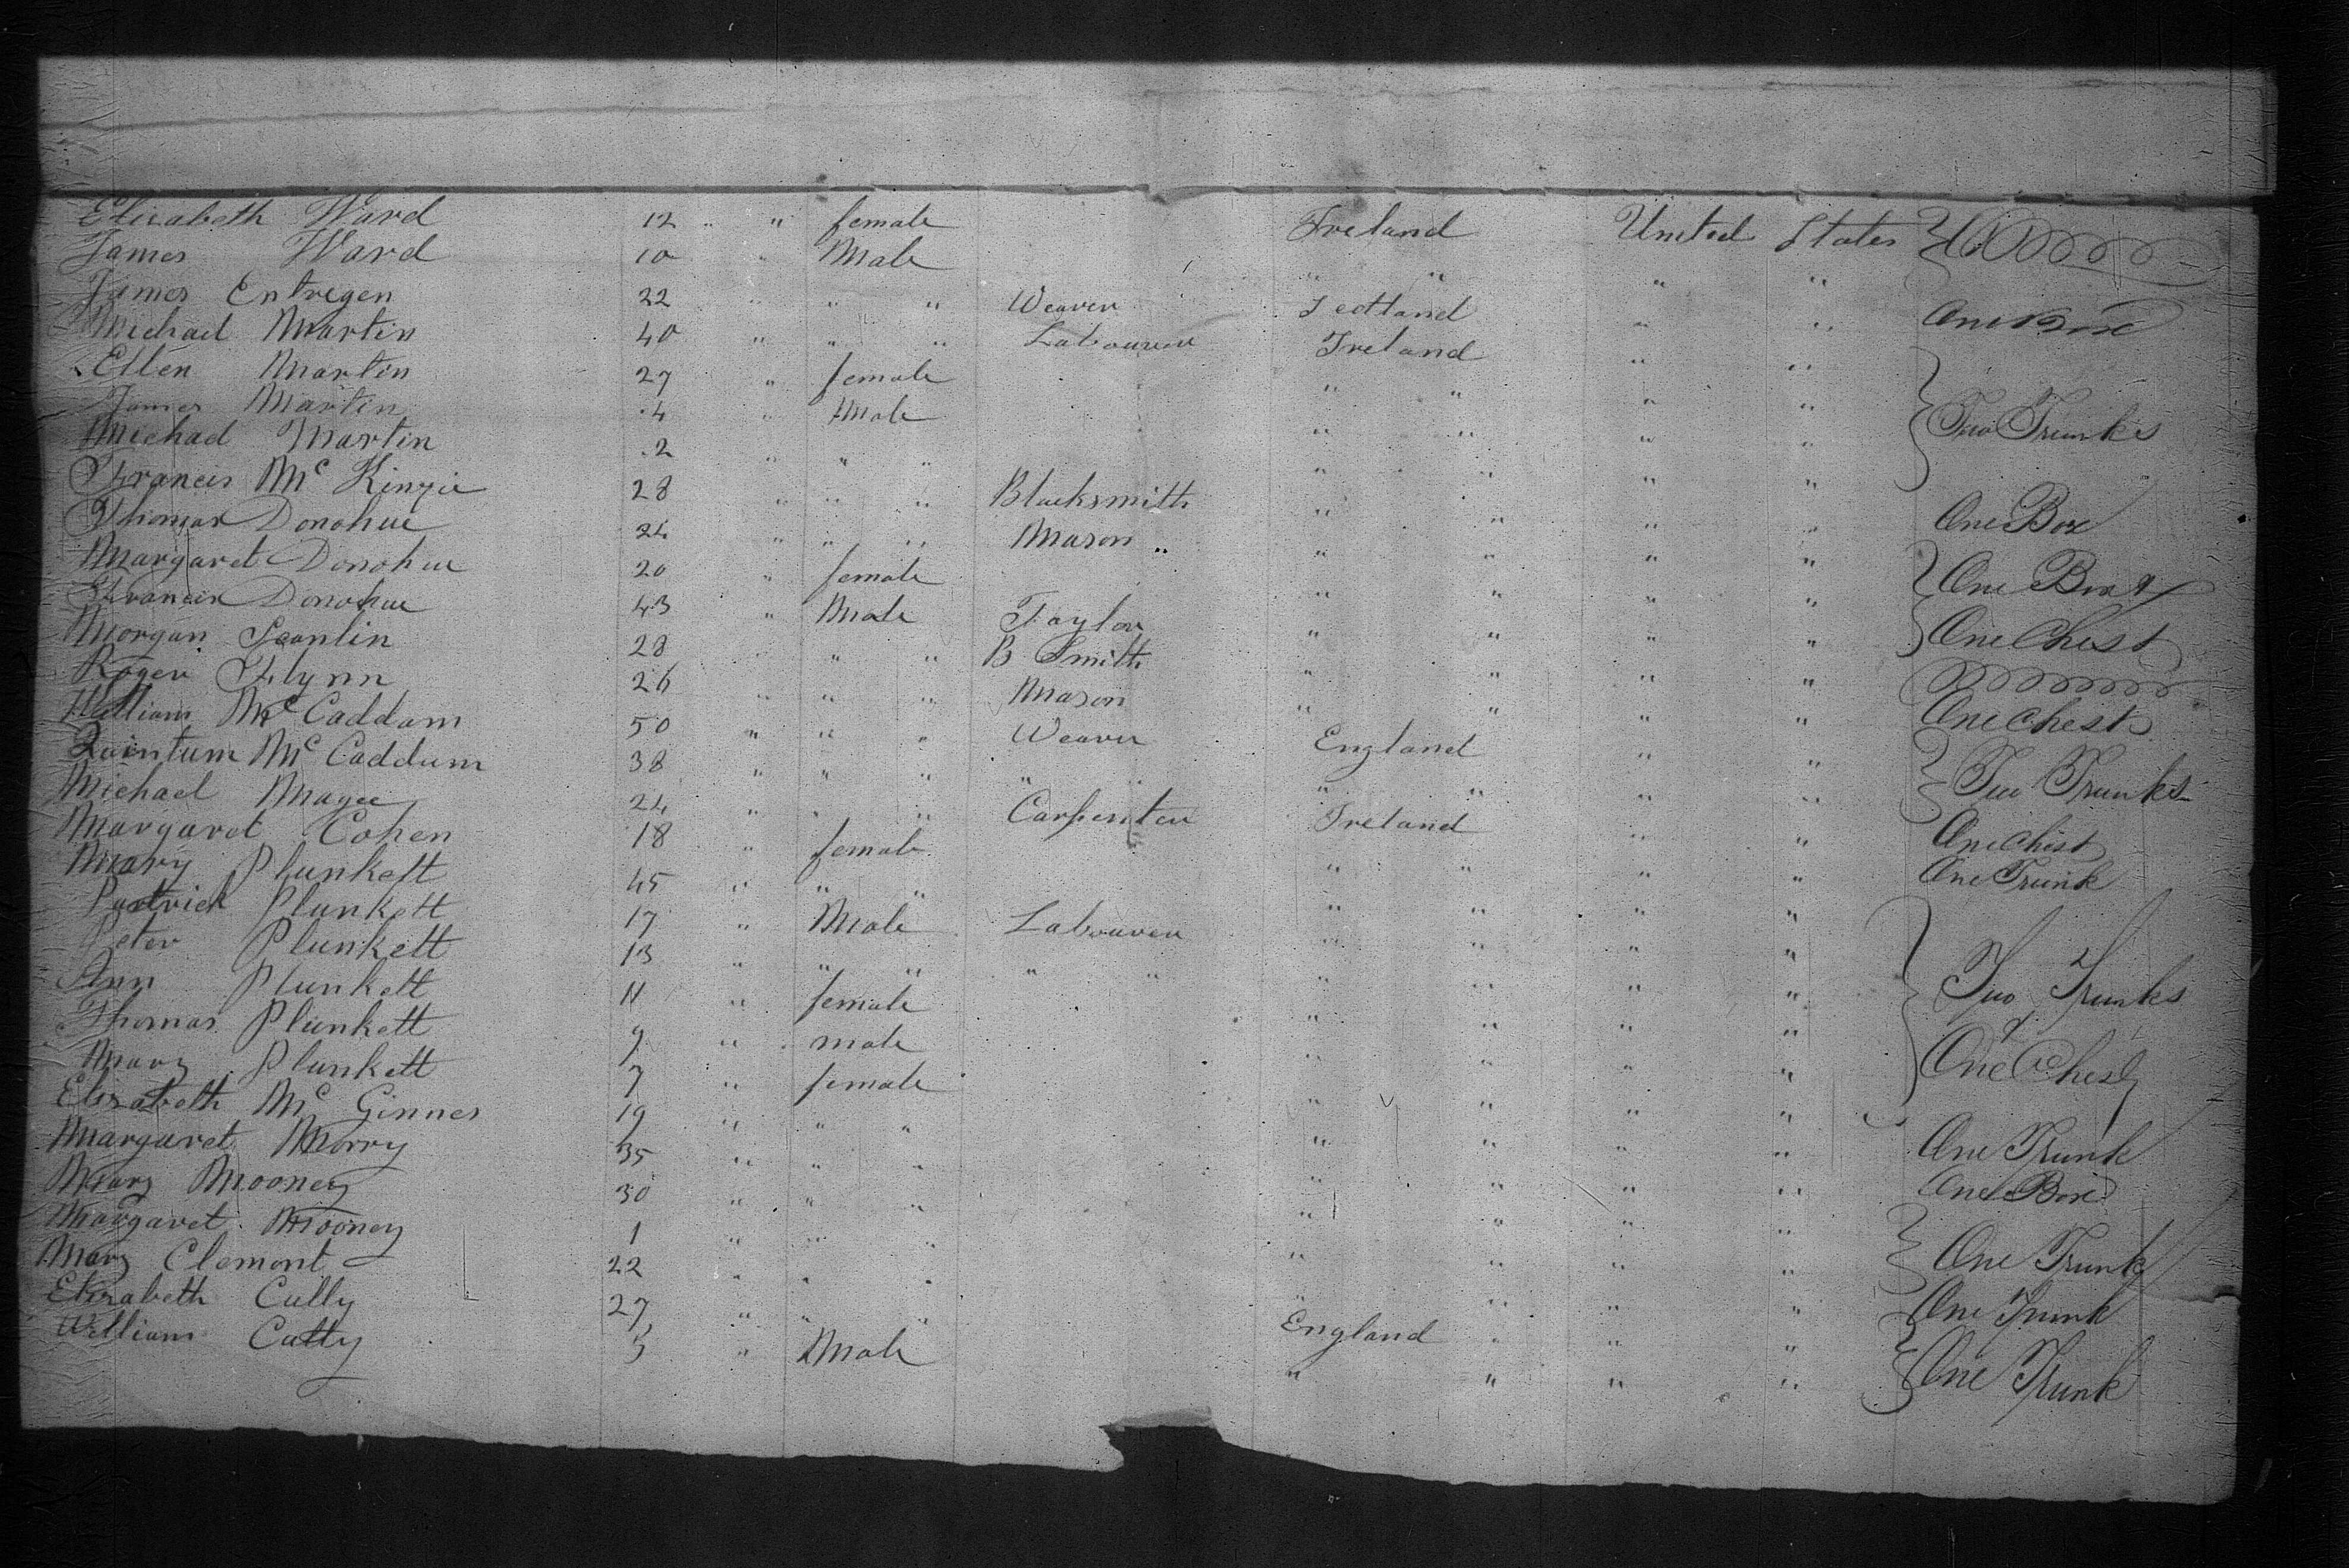 Elizabeth Ward 12 " " female Ireland United States
James Ward 10 " Male " " " "
James Entregen 22 " " " Weaver Scotland " " One Box
Michael Martin 40 " " " Labourer Ireland " "
Ellen Martin 27 " female " " " "
James Martin 4 " Male " " " " Two Trunks
Michael Martin 2 " " " " " " "
Francis Mc Kinzie 28 " " " Blacksmith " " " " One Box
Thomas Donohue 24 " " " Mason " " " " "
Margaret Donohue 20 " female " " " " One Box &
Francis Donohue 43 " Male Taylor " " " " One Chest
Morgan Scanlin 28 " " " B Smith " " " "
Roger Flynn 26 " " " Mason " " " " One Chest
William Mc Caddam 50 " " " Weaver England " "
Quintum Mc Caddum 38 " " " " " " " " " Two Trunks
Michael Magee 24 " " " Carpenter Ireland " " One Chest
Margaret Cohen 18 " female " " " " One Trunk
Mary Plunkett 45 " " " " " " "
Pastrick Plunkett 17 " Male Labourer " " " "
Peter Plunkett 13 " " " " " " " " " Two Trunks
Ann Plunkett 11 " female " " " " &
Thomas Plunkett 9 " male " " " " One Chest
Mary Plunkett 7 " female " " " "
Elizabeth Mc Ginnes 19 " " " " " " " One Trunk
Margaret Morry 35 " " " " " " " One Box
Mary Mooney 30 " " " " " " "
Margaret Mooney 1 " " " " " " " One Trunk
Mary Clemont 22 " " " " " " " One Trunk
Elizabeth Cully 27 " " " England " " "
William Cully 3 " Male " " " " One Trunk